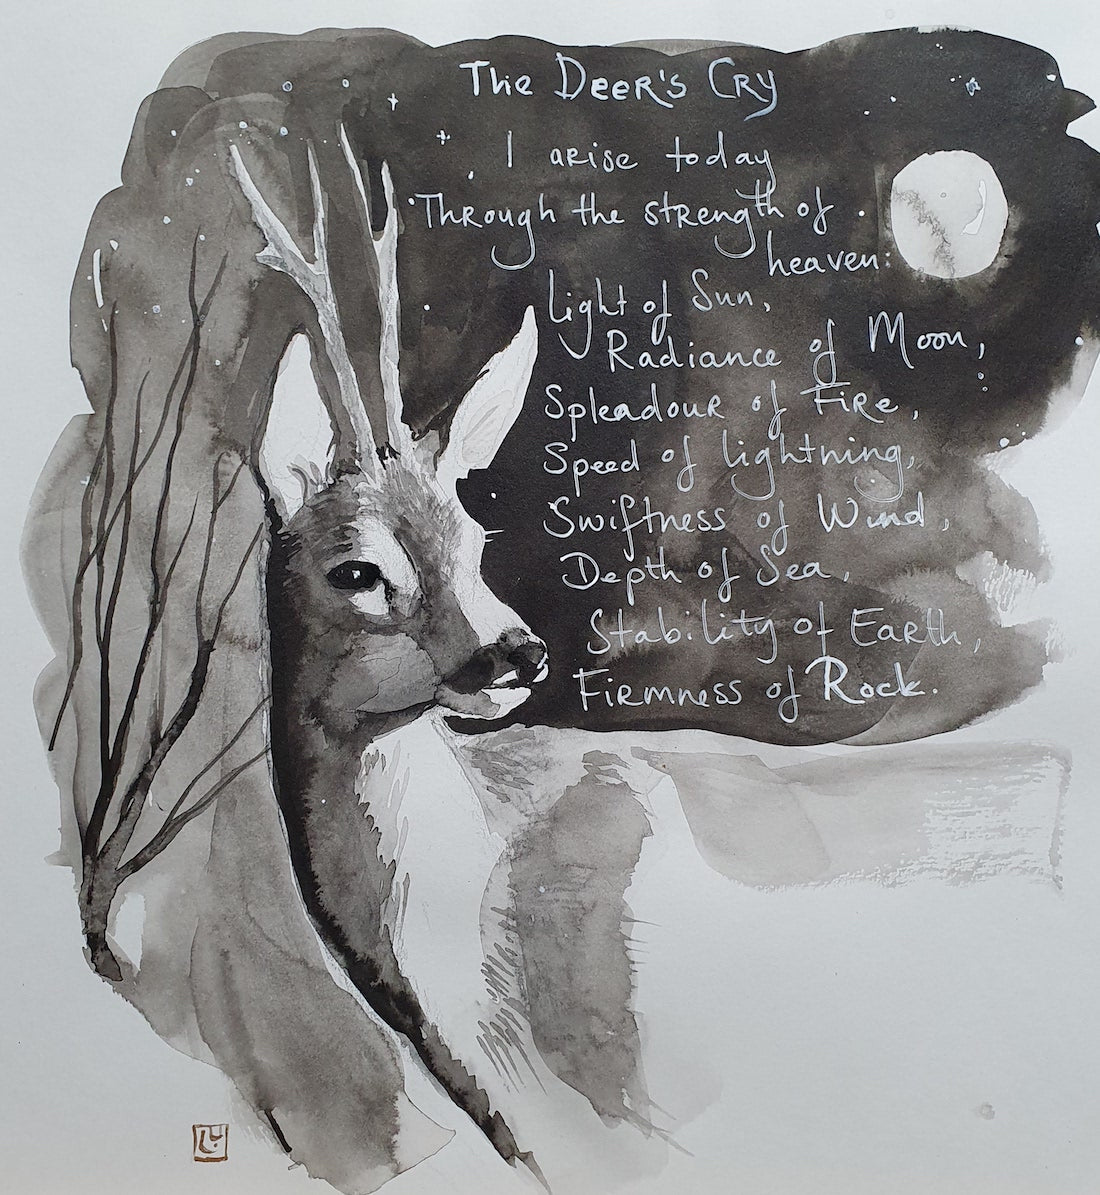 The Deer's Cry
I arise today
Through the strength of
heaven:
Light of Sun,
Radiance of Moon,
Spleadour of Fire,
Speed of lightning,
Swiftness of Wind,
Depth of Sea,
Stability of Earth,
Firmness of Rock.